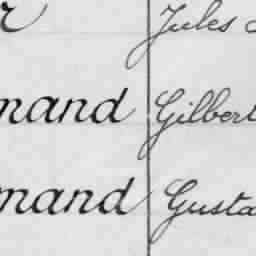 r Jules
mand Gilbert
mand Gusta